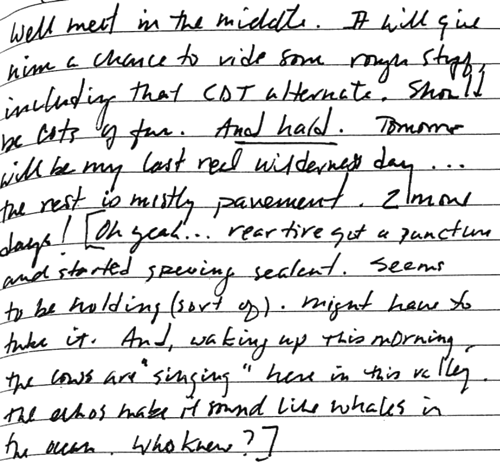 We'll meet in the middle. It will give
him a chance to ride some rough stuff,
including that CDT alternate. Should
be lots of fun. And hard. Tomorrow
will be my last real wilderness day...
the rest is mostly pavement. 2 more
days! [Oh yeah... rear tire got a puncture
and started spewing sealant. Seems
to be holding (sort of). Might have to
tube it. And, waking up this morning,
the cows are "singing" here in this valley.
The echos make it sound like whales in
the ocean. Who knew?]